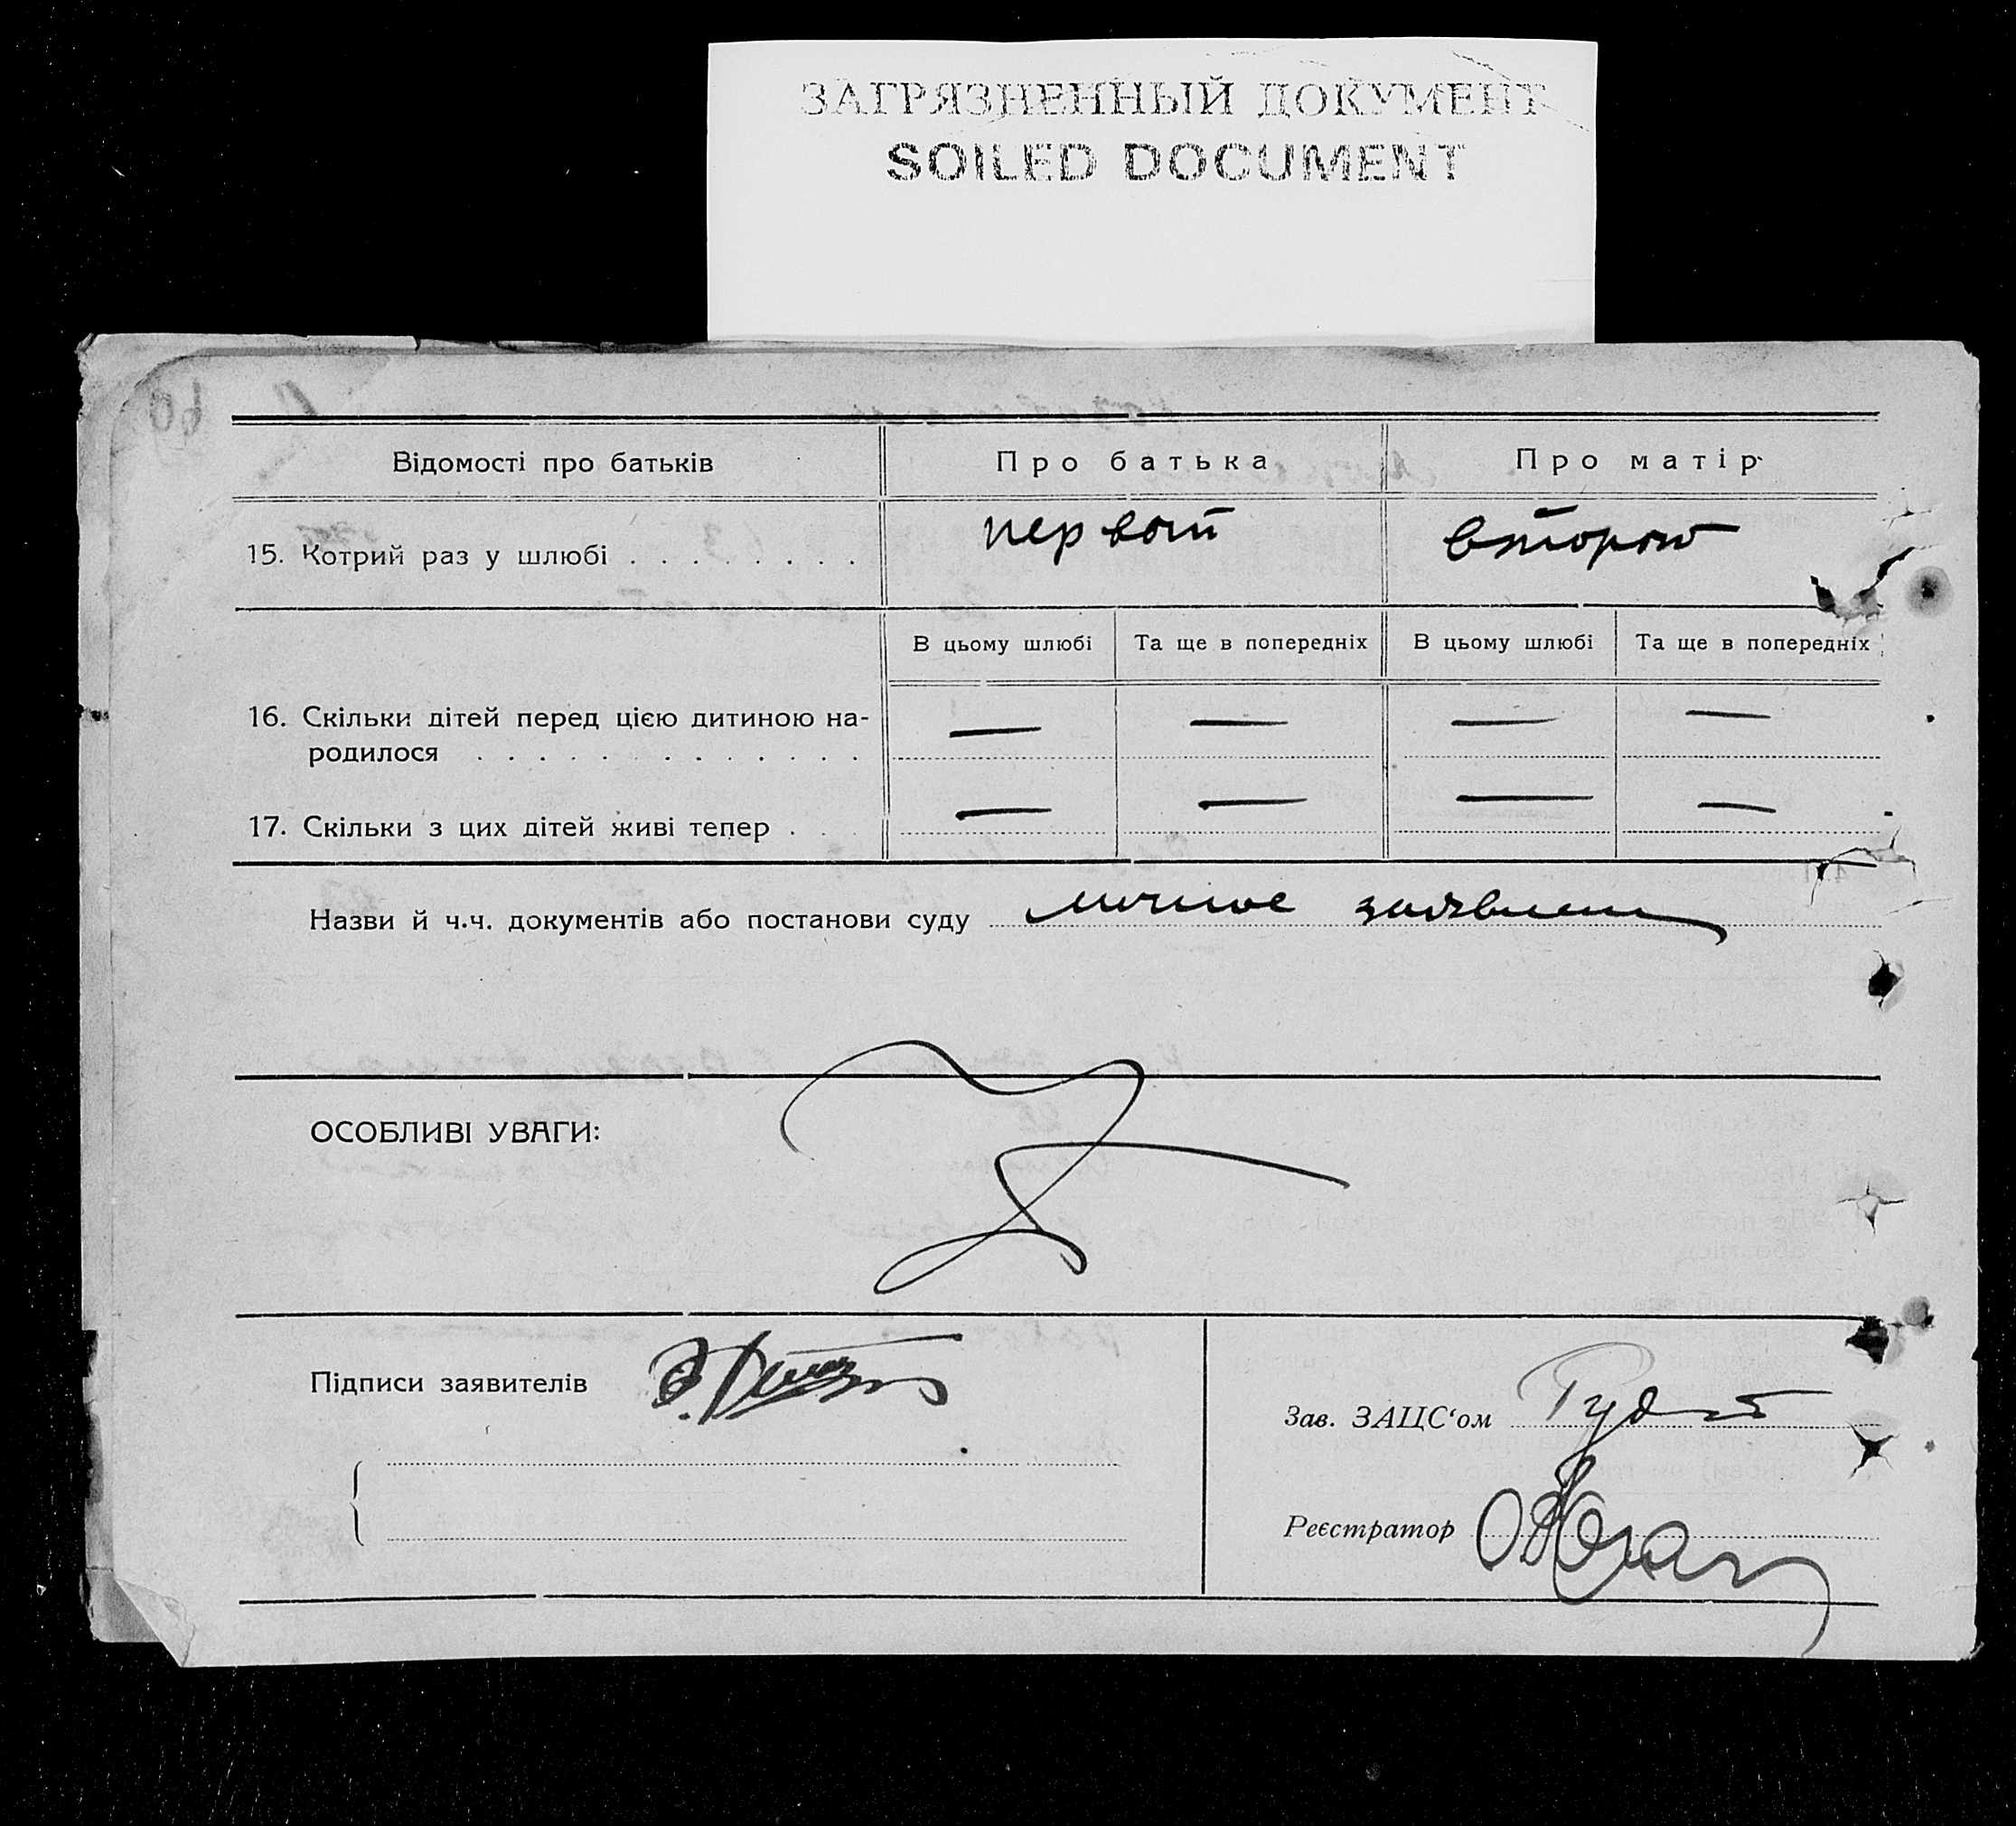 ЗАГРЯЗНЕННЫЙ ДОКУМЕНТ
SOILED DOCUMENT
Відомості про батьків
Про батька
Про матір
15. Котрий раз у шлюбі . . . . . . . .
первый
второй
В цьому шлюбі
Та ще в попередніх
В цьому шлюбі
Та ще в попередніх
16. Скільки дітей перед цією дитиною на-
родилося . . . . . . . . . . . . .
— — — —
17. Скільки з цих дітей живі тепер . . .
— — — —
Назви й ч.ч. документів або постанови суду личное заявлен
ОСОБЛИВІ УВАГИ:
Підписи заявителів
Зав. ЗАЦС‘ом
Реєстратор